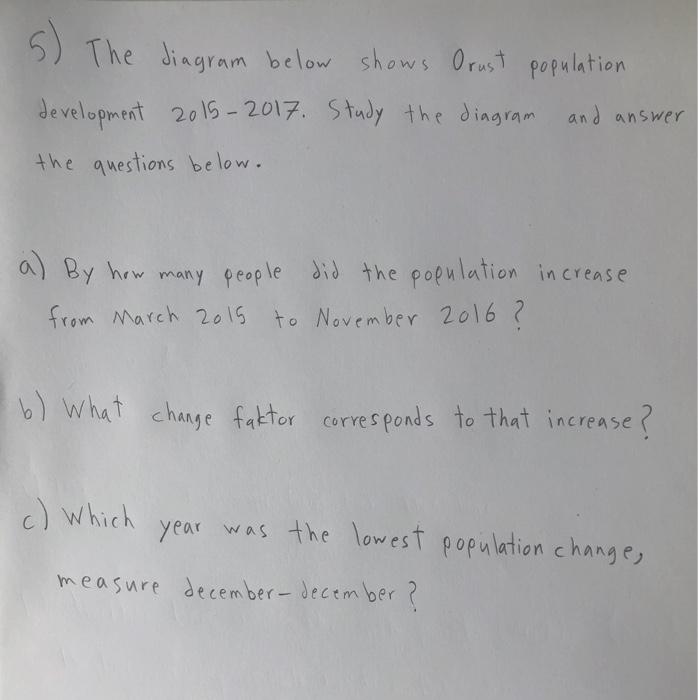 5) The diagram below shows Orust population
development 2015-2017. Study the diagram and answer
the questions below.
a) By how many people did the population increase
from March 2015 to November 2016?
b) What change faktor corresponds to that increase?
c) Which year was the lowest population change,
measure december-december?